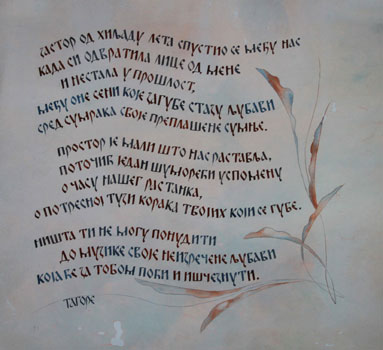 Застор од хиљаду лета спустио се међу нас
када си одвратила лице од мене
и нестала у прошлост,
међу оне сени које загубе стазу љубави
сред сумрака своје преплашене сумње.
простор је мали што нас раставља,
поточић један шумореви успомену
о часу нашег растанка,
о потресној тузи корака твоіих који се губе.
ништа ти не могу понудити
до музике своје неизречене љубави
која ће за тобом поћи и ишчезнути.
Тагоре